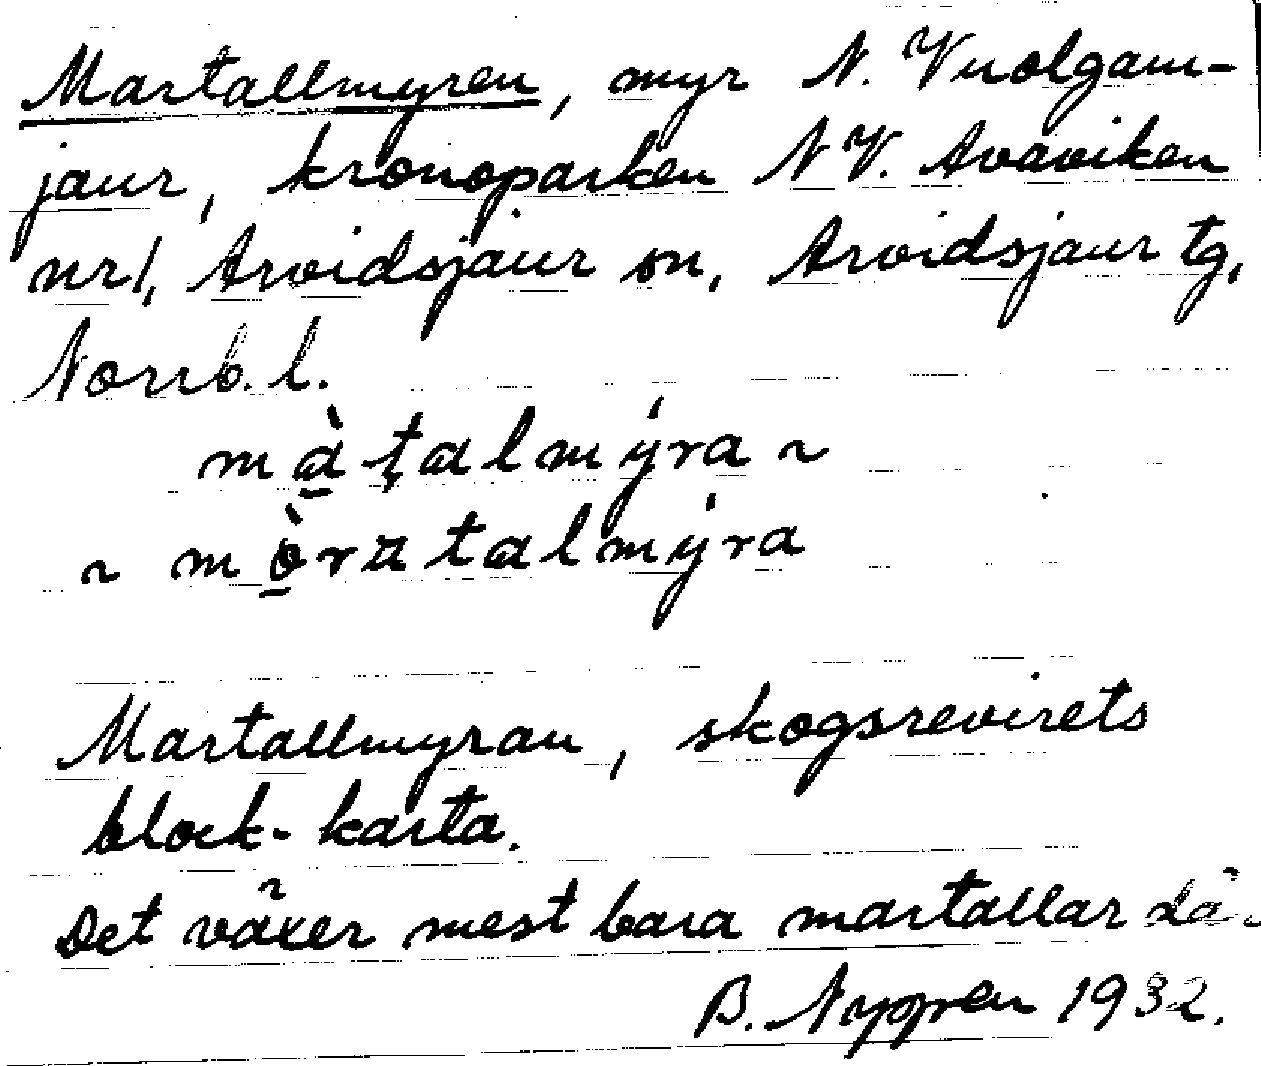 Martallmyren, myr N. Vuolgam-
jaur, kronoparken NV. Avaviken
nr 1, Arvidsjaur sn, Arvidsjaur tg,
Norrb. l.
mà̱ṭalmýra ~
~ mò̱ratalmýra
Martallmyran, skogsrevirets
block-karta.
Det växer mest bara martallar där
B. Nyppren 1932.